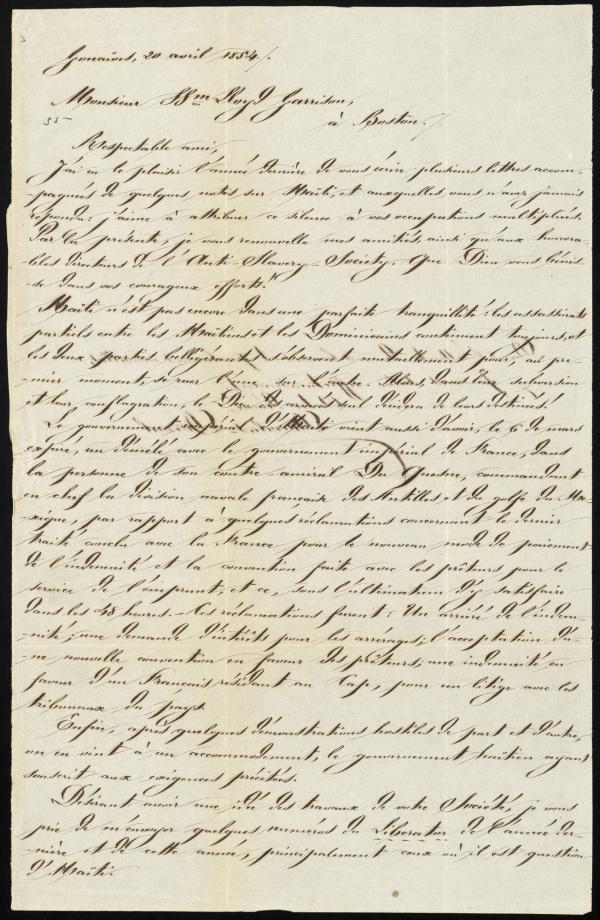 Gonaïves, 20 avril 1854./.
Monsieur Wm Lloyd Garrison,
à Boston./.
55-
Respectable ami,
J'ai eu le plaisir l'année dernière de vous écrire plusieurs lettres accom-
-pagnées de quelques notes sur Haïti, et auxquelles vous n'avez jamais
répondu: j'aime à attribuer ce silence à vos occupations multipliées.
Par la présente, je vous renouvelle mes amitiés, ainsi qu'aux honora-
-bles directeurs de l'Anti-Slavery-Society. Que Dieu vous bénis-
-se dans vos courageux efforts!
Haïti n'est pas encore dans une parfaite tranquillité: les assassinats
partiels entre les Haïtiens et les Dominicains continuent toujours, et
les deux parties belligérantes s'observent mutuellement pour, au pre-
mier moment, se ruer l'une sur l'autre. Alors, dans leur subversion
et leur conflagration, le Dieu des armées seul décidera de leurs destinées.
Le gouvernement impérial d'Haïti vient aussi d'avoir, le 6 de mars
expiré, un démêlé avec le gouvernement impérial de France, dans
la personne de son contre amiral Du Quesne, commandant
en chef la division navale française des Antilles et du golfe du Me-
xique, par rapport à quelques réclamations concernant le dernier
traité conclu avec la France pour le nouveau mode de paiement
de l'indemnité et la convention faite avec les prêteurs pour le
service de l'emprunt, et ce, sous l'ultimatum d'y satisfaire
dans les 48 heures. - Ces réclamations furent: Un arriéré de l'indem-
nité; une demande d'intérêts pour les arrérages; l'acceptation d'u-
ne nouvelle convention en faveur des prêteurs; une indemnité en
faveur d'un Français résidant au Cap, pour un litige avec les
tribunaux du pays.
Enfin, après quelques démonstrations hostiles de part et d'autre,
on en vint à un accommodement, le gouvernement haïtien ayant
souscrit aux exigences précitées.
Désirant avoir une idée des travaux de votre Société, je vous
prie de m'envoyer quelques numéros du Liberator de l'année der-
nière et de cette année, principalement ceux où il est question
d'Haïti.